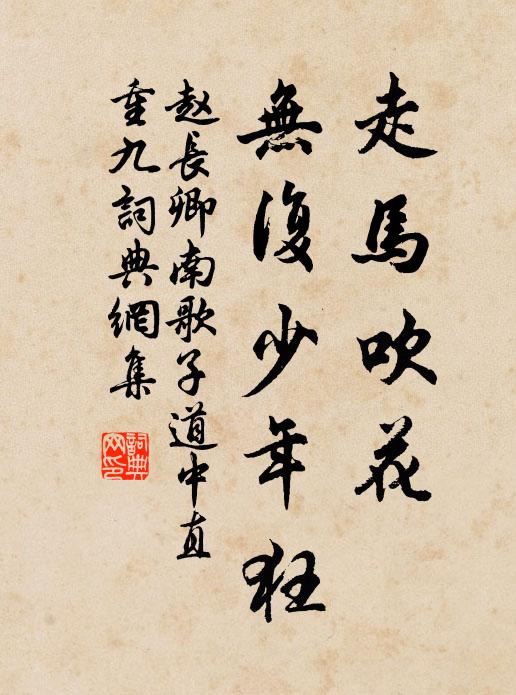 走馬吹花
無復少年狂
赵長卿南歌子道中直
重九詞典網集
詞典網印